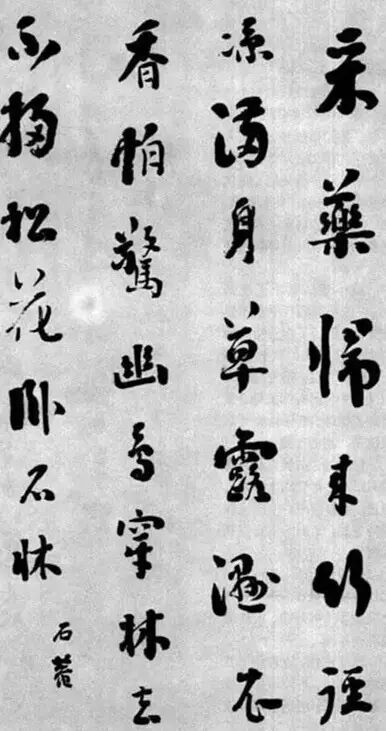 采藥歸来竹徑
凉滿身草露濕衣
香怕驚幽鳥穿林去
不掃松花卧石牀
石菴